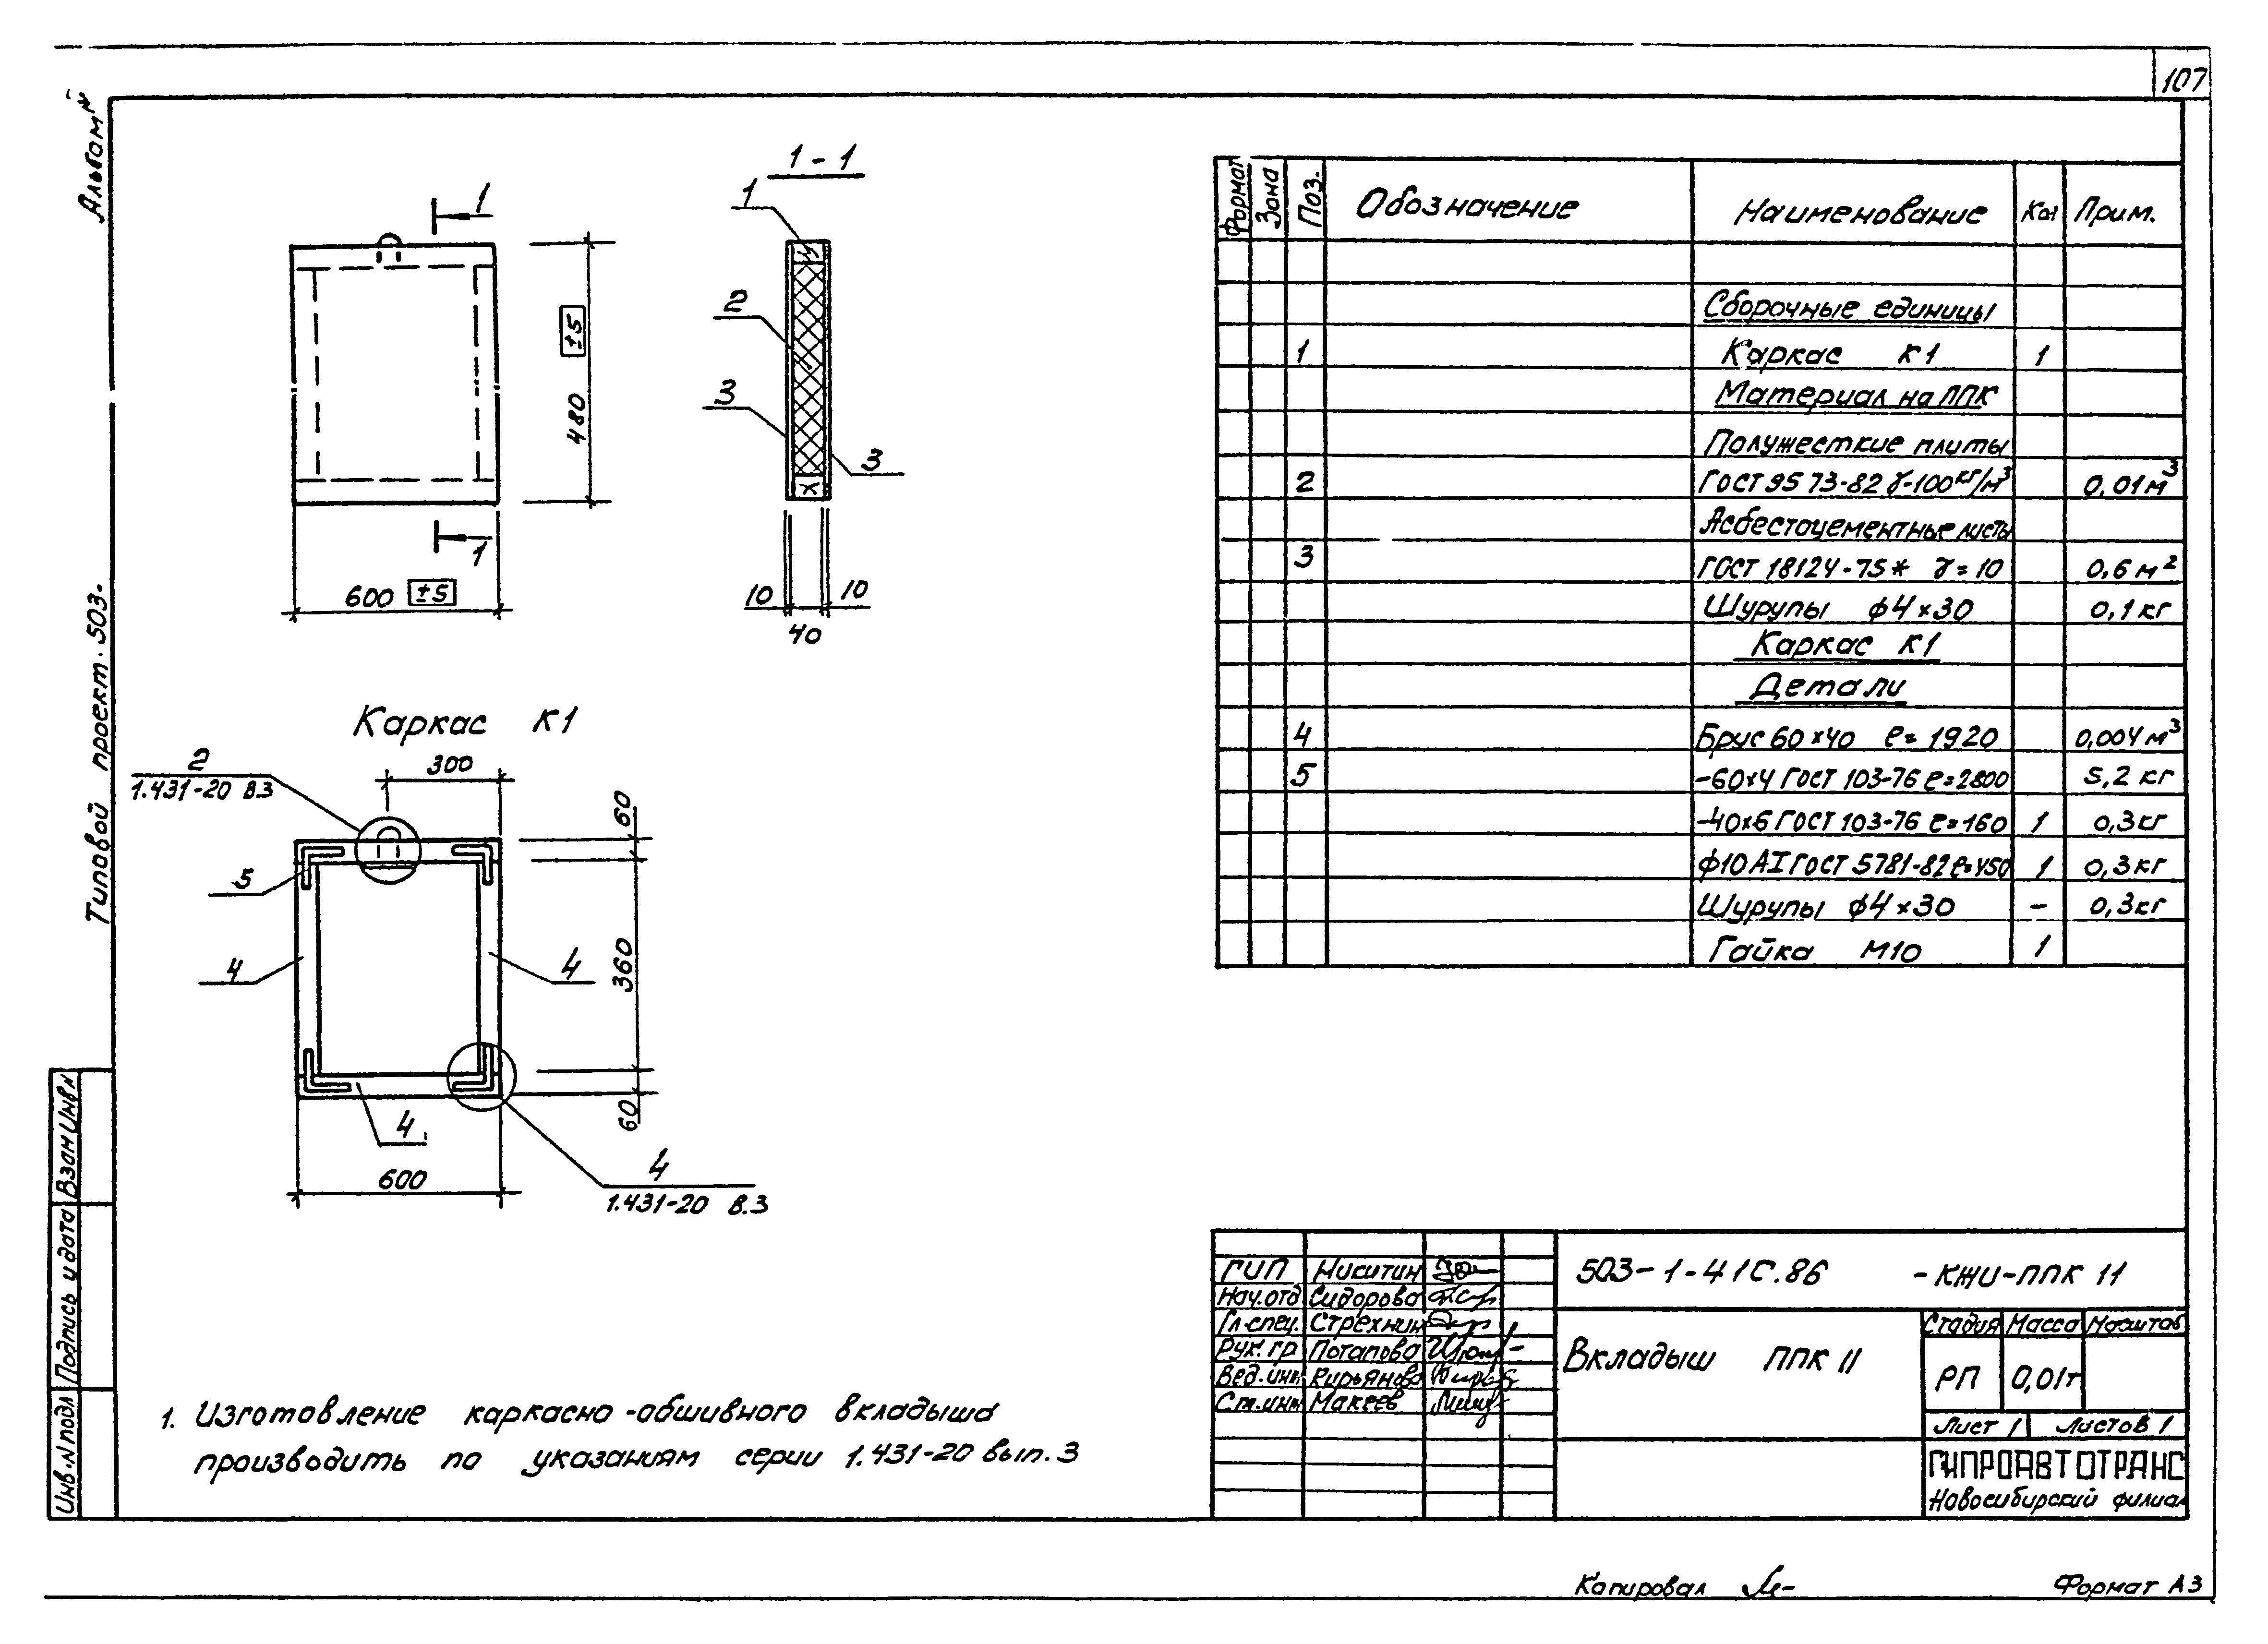 107
Альбом
Типовой проект 503-
1 - 1
1
1
1
2
3
3
480 ±5
600 ±5
10 10
40
Каркас К1
2
1.431-20 В.3
300
60
5
4
4
360
60
4
600
4
1.431-20 В.3
1. Изготовление каркасно-обшивного вкладыша
производить по указаниям серии 1.431-20 вып. 3
Формат Зона Поз. Обозначение Наименование Кол Прим.
Сборочные единицы
1 Каркас К1 1
Материал на ППК
Полужесткие плиты
2 ГОСТ 9573-82 γ-100кг/м³ 0,01м³
Асбестоцементные листы
3 ГОСТ 18124-75* γ=10 0,6м²
Шурупы ф4×30 0,1кг
Каркас К1
Детали
4 Брус 60×40 ℓ=1920 0,004м³
5 -60×4 ГОСТ 103-76 ℓ=2800 5,2 кг
-40×6 ГОСТ 103-76 ℓ=160 1 0,3кг
ф10 АI ГОСТ 5781-82 ℓ=450 1 0,3кг
Шурупы ф4×30 - 0,3кг
Гайка М10 1
ГИП Никитин
Нач.отд Сидорова
Гл.спец. Стрехнин
Рук.гр Потапова
Вед.инж Кирьянова
Ст.инж Макеев
503-1-41С.86 -КЖИ-ППК 11
Вкладыш ППК 11
Стадия Масса Масштаб
РП 0,01т
Лист 1 Листов 1
ГИПРОАВТОТРАНС
Новосибирский филиал
Инв.N подл Подпись и дата Взам инв N
Копировал
Формат А3